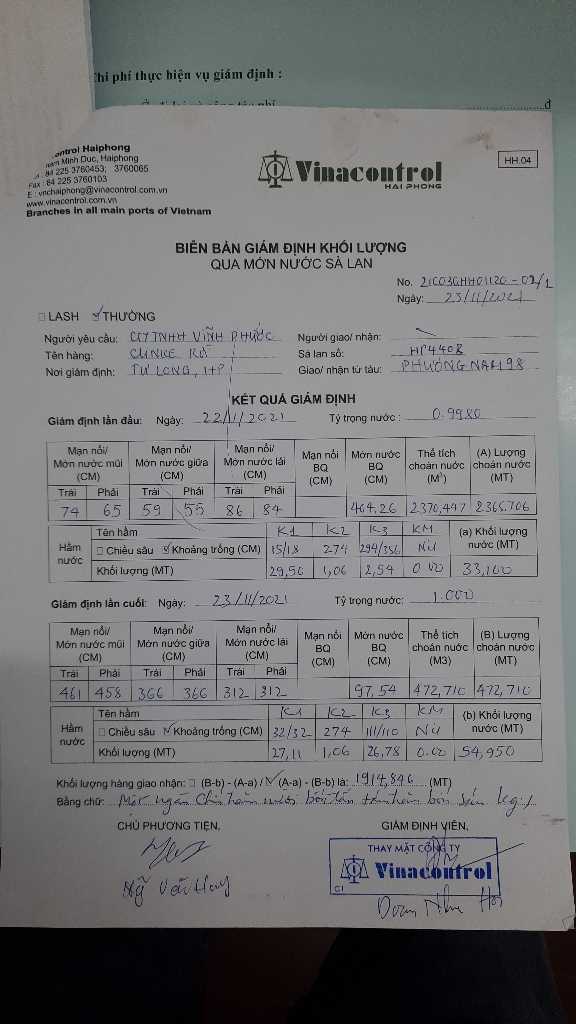 Chi phí thực hiện vụ giám định :
đ
ontrol Haiphong
Minh Duc, Haiphong
84 225 3760453; 3760065
Fax : 84 225 3760103
E : vnchaiphong@vinacontrol.com.vn
www.vinacontrol.com.vn
Branches in all main ports of Vietnam
Vinacontrol
HAI PHONG
HH.04
BIÊN BẢN GIÁM ĐỊNH KHỐI LƯỢNG
QUA MỚN NƯỚC SÀ LAN
No. 21C03GHH01120 - 02/1
Ngày: 23/11/2021
LASH THƯỜNG
Người yêu cầu: CTY TNHH VĨNH PHƯỚC Người giao/ nhận:
Tên hàng: CLINKE RỜI Sà lan số: HP4408
Nơi giám định: TƯ LONG, HP Giao/ nhận từ tàu: PHƯƠNG NAM 98
KẾT QUẢ GIÁM ĐỊNH
Giám định lần đầu: Ngày: 22/11/2021 Tỷ trọng nước : 0.9980
Mạn nổi/ Mớn nước mũi (CM) Mạn nổi/ Mớn nước giữa (CM) Mạn nổi/ Mớn nước lái (CM) Mạn nổi BQ (CM) Mớn nước BQ (CM) Thể tích choán nước (M3) (A) Lượng choán nước (MT)
Trái Phải Trái Phải Trái Phải
74 65 59 55 86 84 464,26 2370,447 2365.706
Hầm nước Tên hầm K1 K2 K3 KM (a) Khối lượng nước (MT)
Chiều sâu Khoảng trống (CM) 15/18 274 294/356 Nil
Khối lượng (MT) 29,50 1,06 2,54 0.00 33,100
Giám định lần cuối: Ngày: 23/11/2021 Tỷ trọng nước: 1.000
Mạn nổi/ Mớn nước mũi (CM) Mạn nổi/ Mớn nước giữa (CM) Mạn nổi/ Mớn nước lái (CM) Mạn nổi BQ (CM) Mớn nước BQ (CM) Thể tích choán nước (M3) (B) Lượng choán nước (MT)
Trái Phải Trái Phải Trái Phải
461 458 366 366 312 312 97,54 472,710 472,710
Hầm nước Tên hầm K1 K2 K3 KM (b) Khối lượng nước (MT)
Chiều sâu Khoảng trống (CM) 32/32 274 111/110 Nil
Khối lượng (MT) 27,11 1,06 26,78 0.00 54,950
Khối lượng hàng giao nhận: (B-b) - (A-a) / (A-a) - (B-b) là: 1914,846 (MT)
Bằng chữ: Một ngàn chín trăm mười bốn tấn tám trăm bốn sáu kg./
CHỦ PHƯƠNG TIỆN, GIÁM ĐỊNH VIÊN,
THAY MẶT CÔNG TY
Vinacontrol
C1
Doan Như